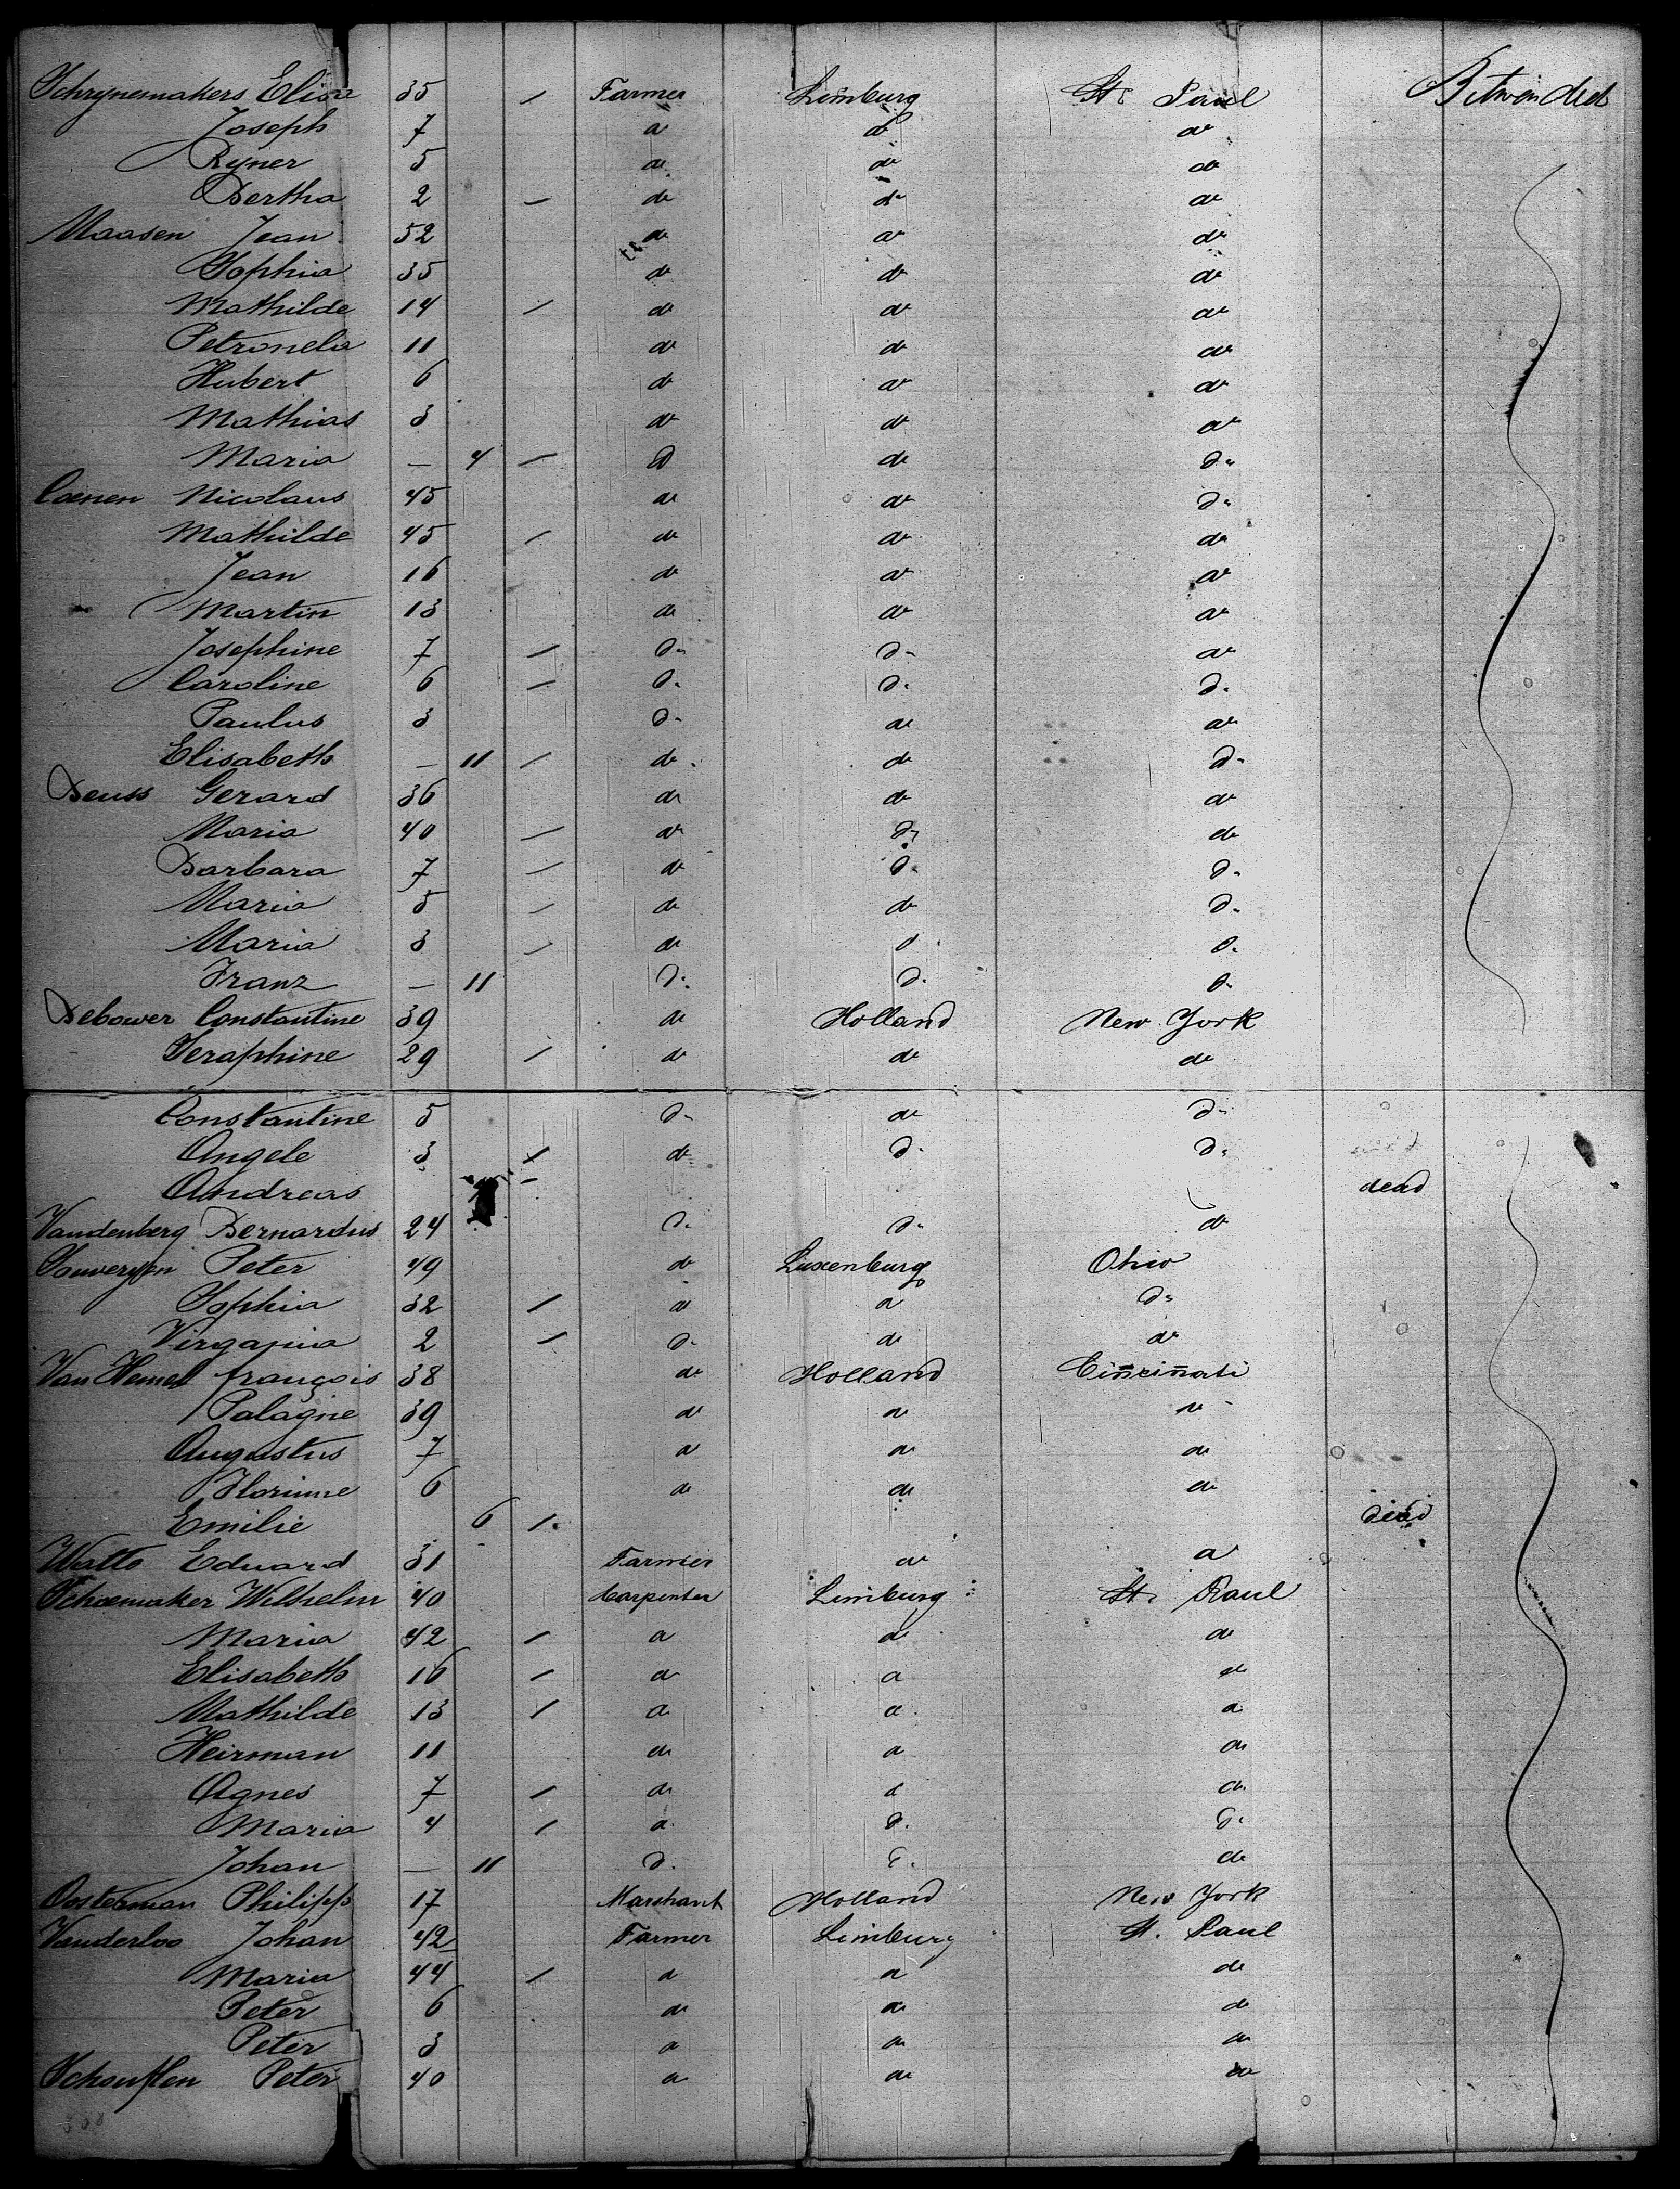 Schrynemakers Elisa 35 / Farmer Limburg St. Paul Betwendeck
Joseph 7 do do do
Ryner 5 do do do
Bertha 2 / do do do
Maasen Jean 52 do do do
Sophia 35 do do do
Mathilde 14 / do do do
Petronela 11 do do do
Hubert 6 do do do
Mathias 3 do do do
Maria — 4 / do do do
Coenen Nicolaus 45 do do do
Mathilde 45 / do do do
Jean 16 do do do
Martin 13 do do do
Josephine 7 / do do do
Caroline 6 / do do do
Paulus 3 do do do
Elisabeth — 11 / do do do
Deuss Gerard 36 do do do
Maria 40 / do do do
Barbara 7 / do do do
Maria 5 / do do do
Maria 3 / do do do
Franz — 11 do do do
Debower Constantine 39 do Holland New York
Seraphine 29 / do do do
Constantine 5 do do do
Angele 3 / do do do
Andreas / dead
Vandenberg Bernardus 24 do do do
Peter 49 do Luxenburg Ohio
Sophia 32 / do do do
Virgapia 2 / do do do
Van Hemel françois 38 do Holland Cincinati
Palagne 39 do do do
Augustus 7 do do do
Florinne 6 do do do
Emilie 6 / dead
Watts Eduard 31 Farmer do do
Schoemaker Wilhelm 40 Carpenter Limburg St. Paul
Maria 42 / do do do
Elisabeth 16 / do do do
Mathilde 13 / do do do
Heirman 11 do do do
Agnes 7 / do do do
Maria 4 / do do do
Johan — 11 do do do
Oosterman Philipp 17 Marchant Holland New York
Vanderloo Johan 42 Farmer Limburg St. Paul
Maria 44 / do do do
Peter 6 do do do
Peter 3 do do do
Schouften Peter 40 do do do